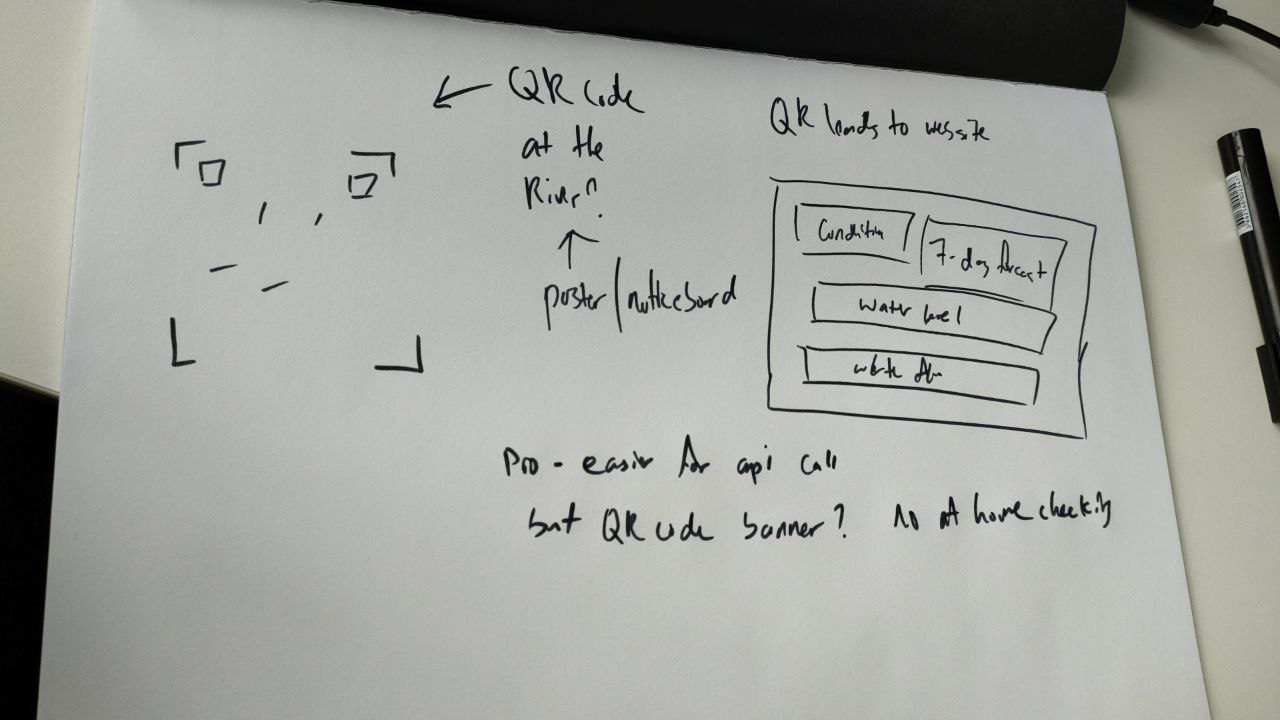 QR code
at the
River?
poster/noticeboard
QR leads to website
Condition
7-day forecast
water level
Pro - easier for api call
but QR code banner? no at home checking